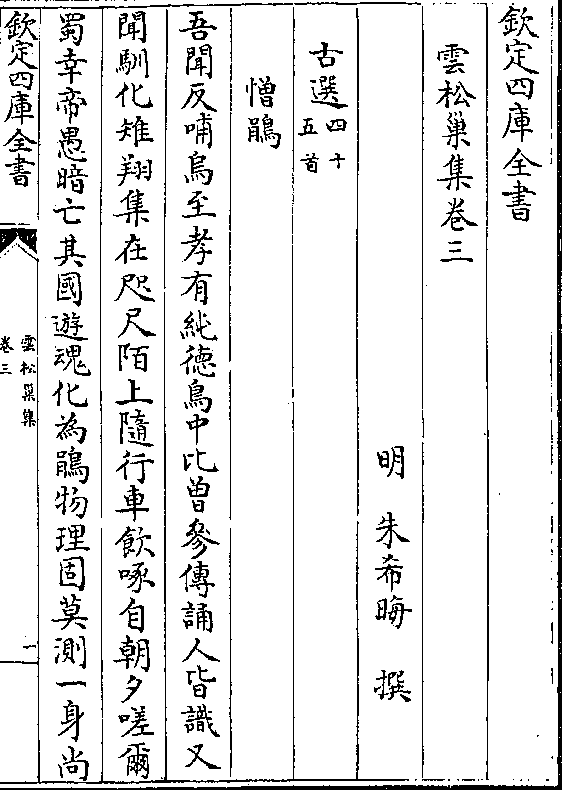 欽定四庫全書
雲松巢集卷三
明 朱希晦 撰
古選四十五首
憎鵑
吾聞反哺烏至孝有純德鳥中比曽參傳誦人皆識又
聞馴化雉翔集在咫尺陌上隨行車飲啄自朝夕嗟爾
蜀幸帝愚暗亡其國遊魂化為鵑物理固莫測一身尚
欽定四庫全書
雲松巢集
卷三
一